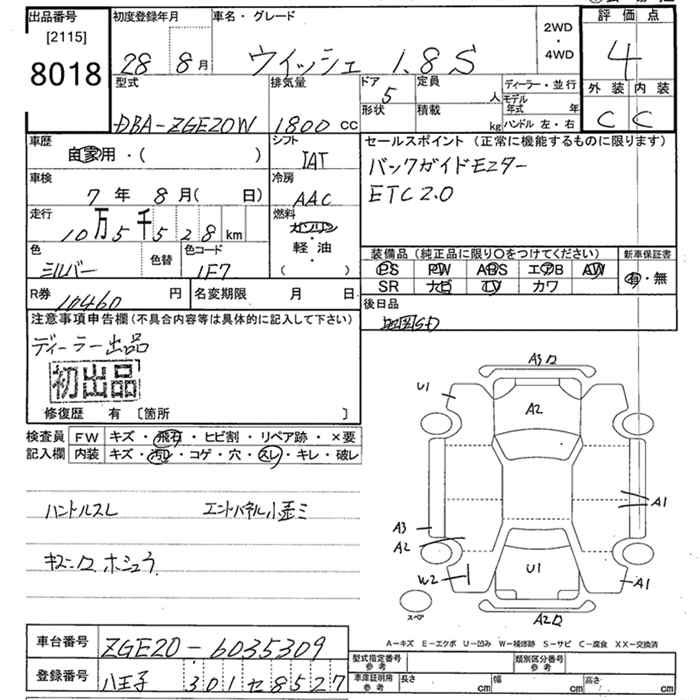 出品番号
[2115]
8018
初度登録年月
28年 8月
車名・グレード
ウィッシュ 1.8S
2WD
・
4WD
評価点
4
型式
DBA-ZGE20W
排気量
1800cc
ドア
5
形状
定員
人
積載
kg
ディーラー・並行
モデル年式 年
ハンドル 左・右
外装 内装
C C
車歴
自家用・( )
シフト
IAT
車検
7年 8月( 日)
冷房
AAC
走行
10万5千528km
燃料
ガソリン
軽・油
( )
色
シルバー
色替
色コード
1F7
R券
10460円
名変期限 月 日
セールスポイント(正常に機能するものに限ります)
バックガイドモニター
ETC2.0
装備品(純正品に限り○をつけてください)
PS PW ABS エアB AW
SR ナビ TV カワ
新車保証書
有・無
後日品
地図SD
注意事項申告欄(不具合内容等は具体的に記入して下さい)
ディーラー出品
初出品
修復歴 有 [箇所 ]
検査員記入欄
FW キズ・飛石・ヒビ割・リペア跡・×要
内装 キズ・汚レ・コゲ・穴・スレ・キレ・破レ
ハンドルスレ エンドパネル小歪ミ
キズ
ホシュウ
A3
U1
A2
A1
A3
A2
W2
U1
A1
スペア
A2
A-キズ E-エクボ U-凹み W-補修跡 S-サビ C-腐食 XX-交換済
車台番号
ZGE20-6035309
登録番号
八王子 301 セ 8527
型式指定番号
参考
類別区分番号
参考
車庫証明用
参考
長さ cm 幅 cm 高さ cm